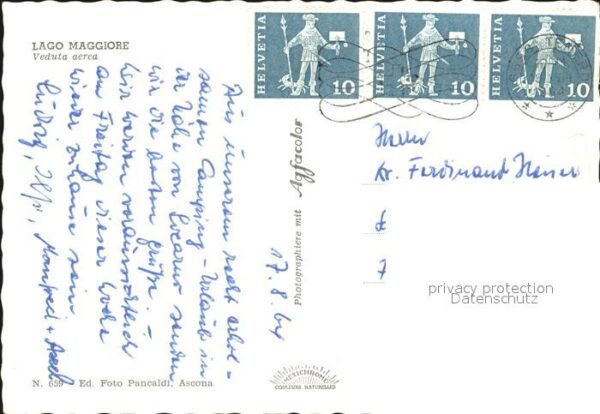 LAGO MAGGIORE
Veduta aerea
Aus unserem recht erhol-
samen Camping-Urlaub in
der Nähe von Locarno senden
wir die besten Grüße. –
Wir werden voraussichtlich
am Freitag dieser Woche
wieder zuhause sein.
Ludwig, Manfred + Axel
17.8.64
N. 659 Ed. Foto Pancaldi, Ascona
Photographiere mit Agfacolor
METICHROME
COULEURS NATURELLES
HELVETIA 10
HELVETIA 10
HELVETIA 10
Herrn
Dr. Ferdinand Heiser
7
privacy protection
Datenschutz